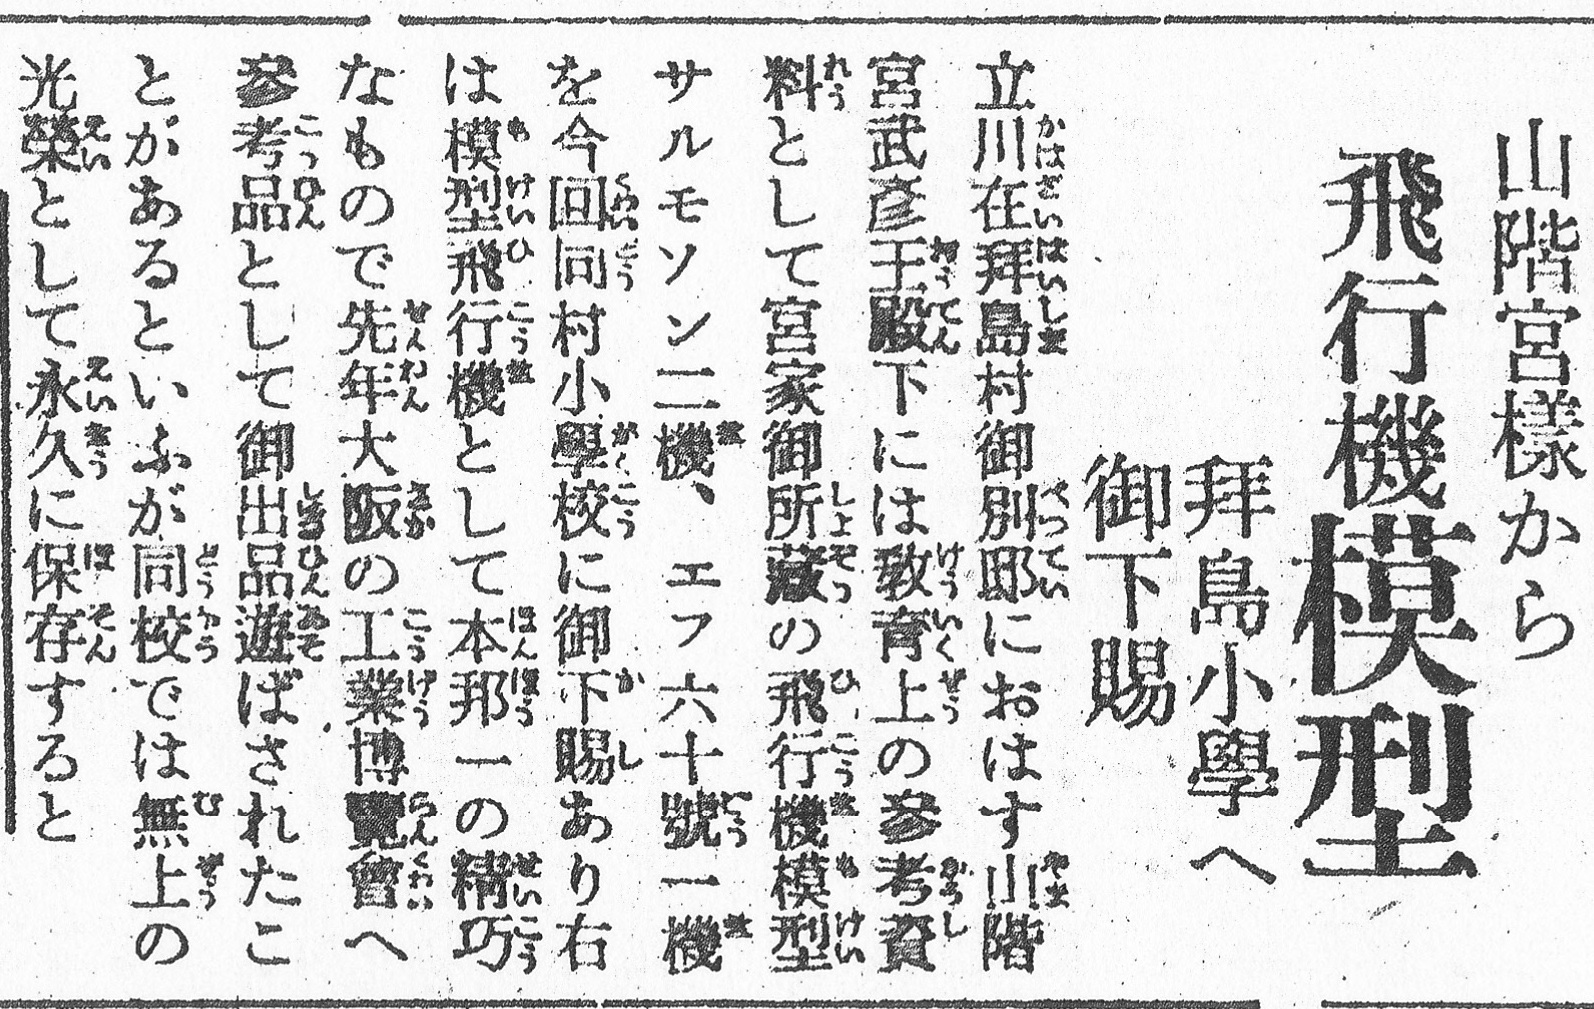 山階宮樣から
飛行機模型
拜島小學へ
御下賜
立川在拜島村御別邸におはす山階
宮武彦王殿下には敎育上の參考資
料として宮家御所藏の飛行機模型
サルモソン二機、エフ六十號一機
を今回同村小學校に御下賜あり右
は模型飛行機として本邦一の精巧
なもので先年大阪の工業博覽會へ
參考品として御出品遊ばされたこ
とがあるといふが同校では無上の
光榮として永久に保存すると